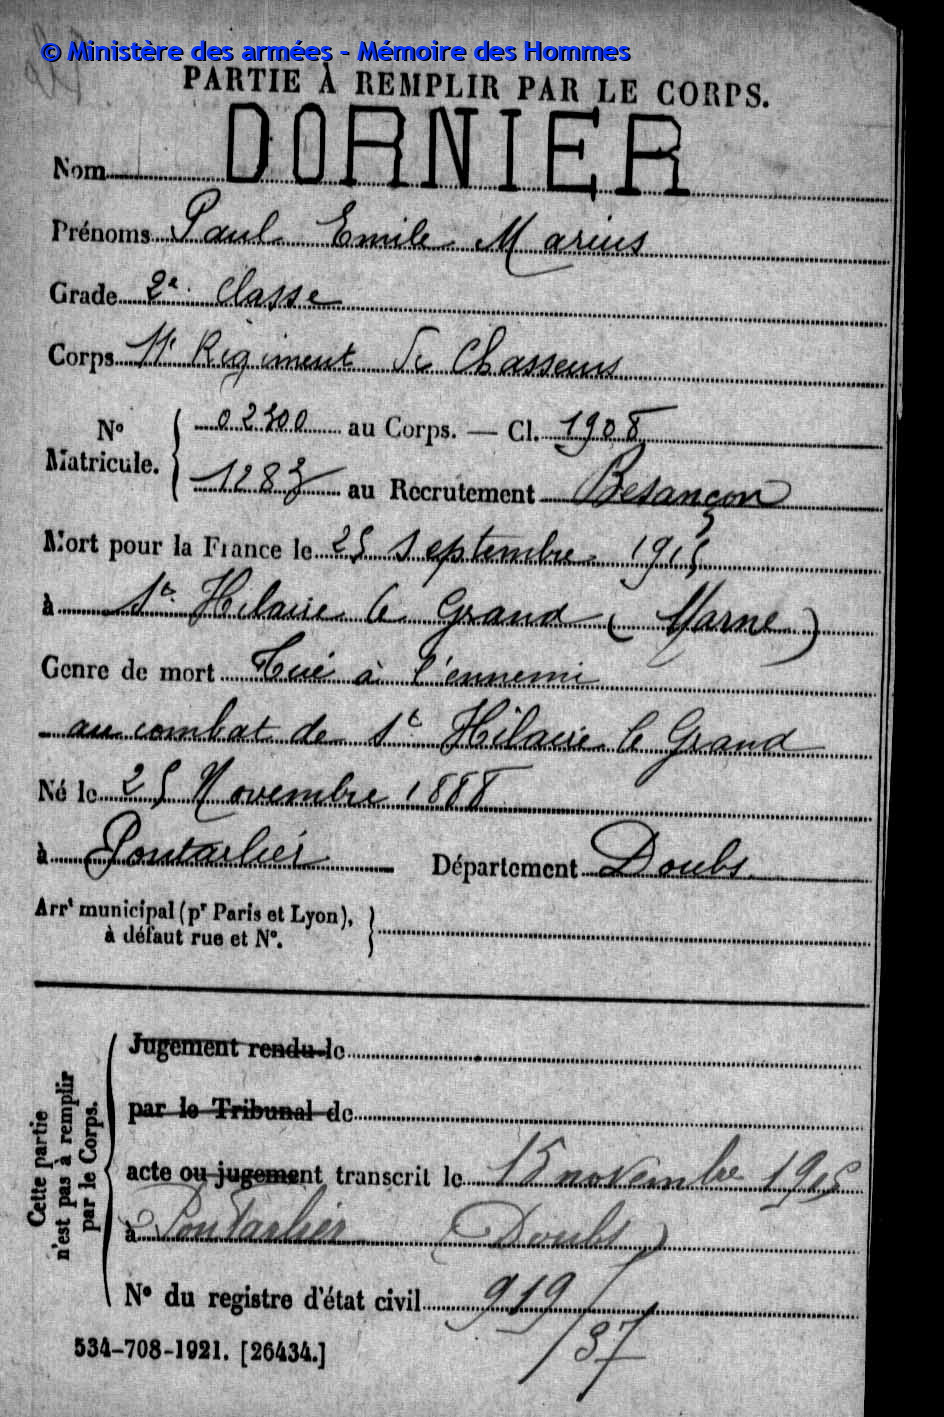 © Ministère des armées - Mémoire des Hommes
PARTIE À REMPLIR PAR LE CORPS.
Nom DORNIER
Prénoms Paul Emile Marius
Grade 2e classe
Corps 11e Régiment de Chasseurs
No Matricule. { 02300 au Corps. — Cl. 1908
1283 au Recrutement Besançon
Mort pour la France le 25 septembre 1915
à St. Hilaire le Grand (Marne)
Genre de mort Tué à l'ennemi
au combat de St Hilaire le Grand
Né le 25 Novembre 1888
à Pontarlier Département Doubs
Arrt municipal (pr Paris et Lyon),
à défaut rue et No.
Cette partie n'est pas à remplir par le Corps.
Jugement rendu le
par le Tribunal de
acte ou jugement transcrit le 15 novembre 1915
à Pontarlier (Doubs)
No du registre d'état civil 919/37
534-708-1921. [26434.]